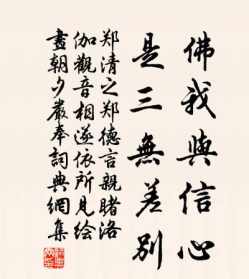 佛我與信心
是三無差別
郑清之郑德言親睹洛
伽觀音相遂依所見绘
畫朝夕嚴奉詞典網集